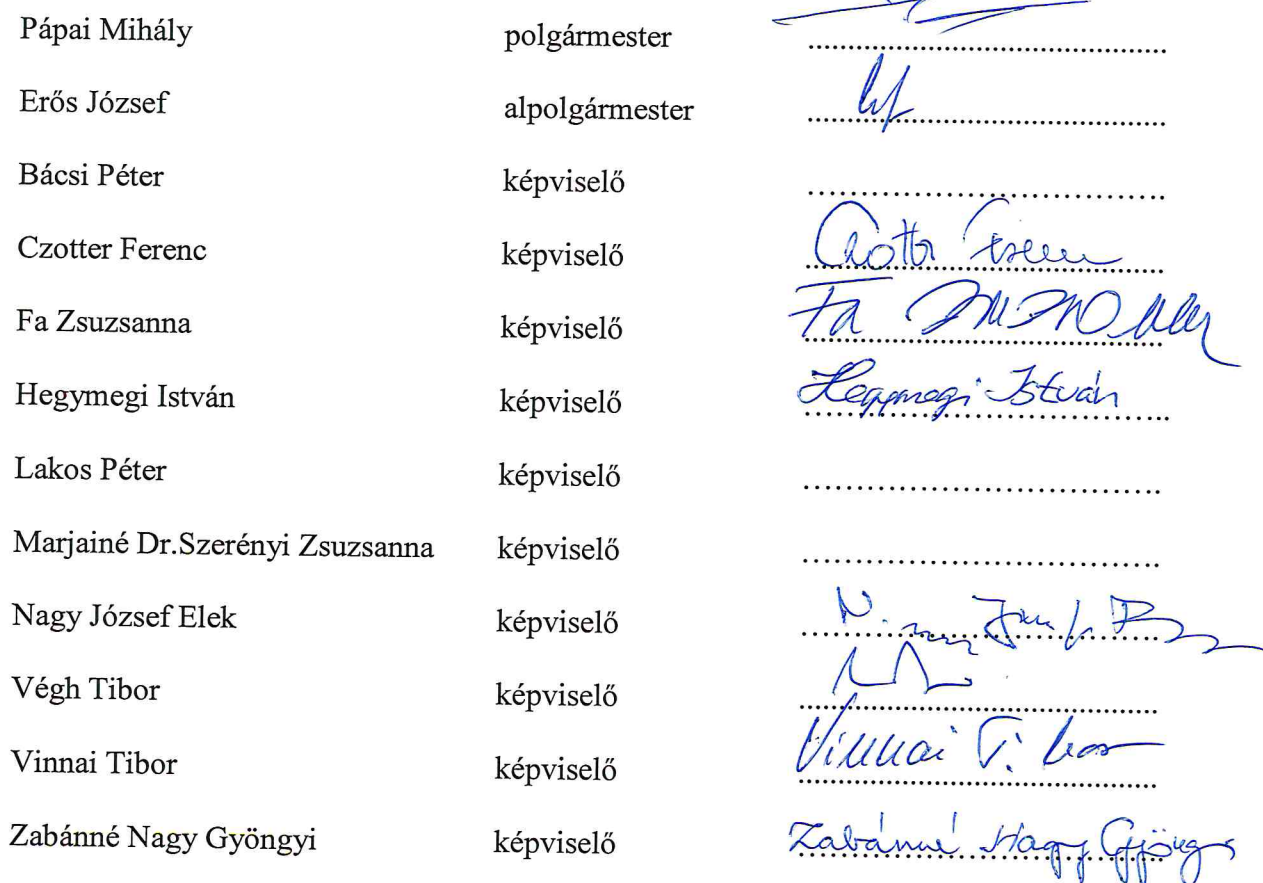 Pápai Mihály polgármester
Erős József alpolgármester
Bácsi Péter képviselő
Czotter Ferenc képviselő
Fa Zsuzsanna képviselő Fa
Hegymegi István képviselő Hegymegi István
Lakos Péter képviselő
Marjainé Dr.Szerényi Zsuzsanna képviselő
Nagy József Elek képviselő
Végh Tibor képviselő
Vinnai Tibor képviselő Vinnai Tibor
Zabánné Nagy Gyöngyi képviselő Zabánné Nagy Gyöngyi